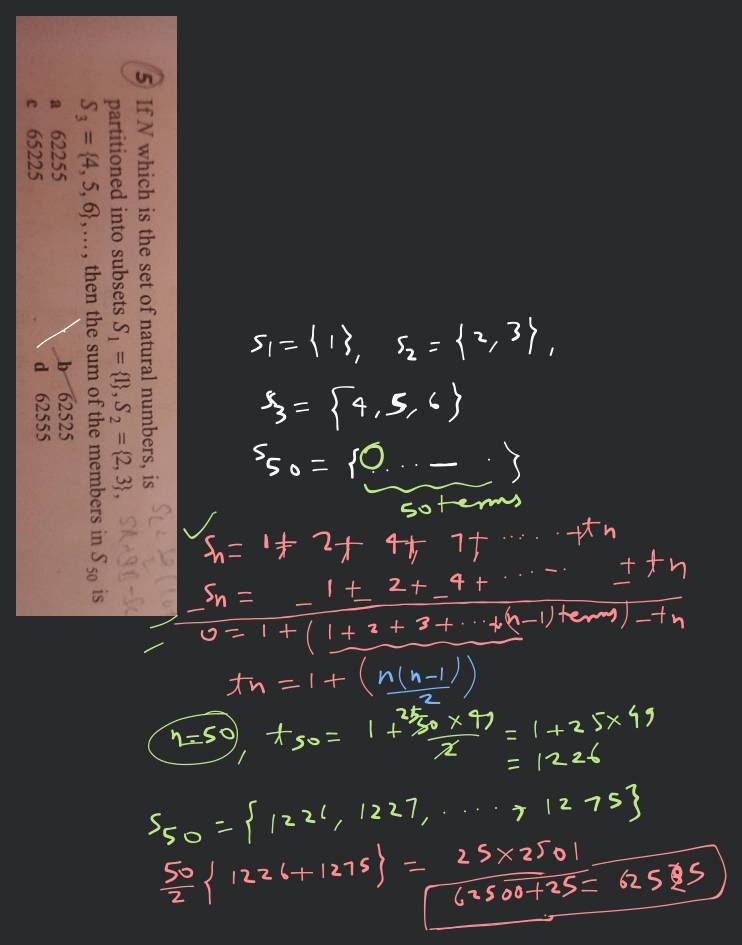 5 If N which is the set of natural numbers, is
partitioned into subsets S₁ = {1}, S₂ = {2, 3},
S₃ = {4, 5, 6},..., then the sum of the members in S₅₀ is
a 62255 b 62525
c 65225 d 62555
S₁ = {1}, S₂ = {2, 3},
S₃ = {4, 5, 6}
S₅₀ = {0... — .}
50 terms
Sₙ = 1 + 2 + 4 + 7 + ..... + tₙ
_Sₙ = _ 1 + 2 + 4 + ..... ± tₙ
0 = 1 + (1 + 2 + 3 + ... + (n-1) terms) - tₙ
tₙ = 1 + (n(n-1)/2)
n=50, t₅₀ = 1 + 25 50 × 49 / 2 = 1 + 25 × 49
= 1226
S₅₀ = {1226, 1227, ....., 1275}
50/2 {1226 + 1275} = 25 × 2501
62500 + 25 = 62525